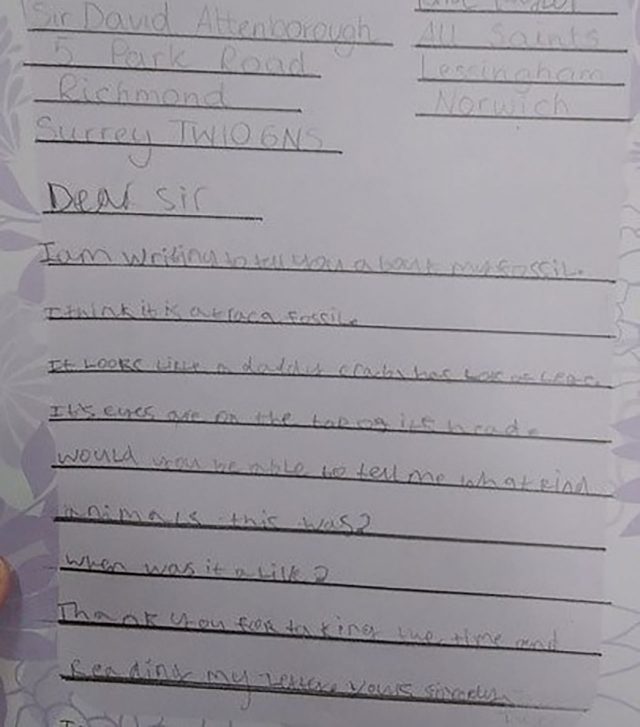 Sir David Attenborough
5 Park Road
Richmond
Surrey TW10 6NS
All Saints
Lessingham
Norwich
Dear Sir
I am writing to tell you about my fossil.
I think it is a traca fossile
It Looks Like a daddy crab, has Lots of Legs.
It's eyes are on the top of its head.
would you be able to tell me what kind
animals this was?
when was it alive?
Thank you for taking the time and
Reading my Letter yours sincerely